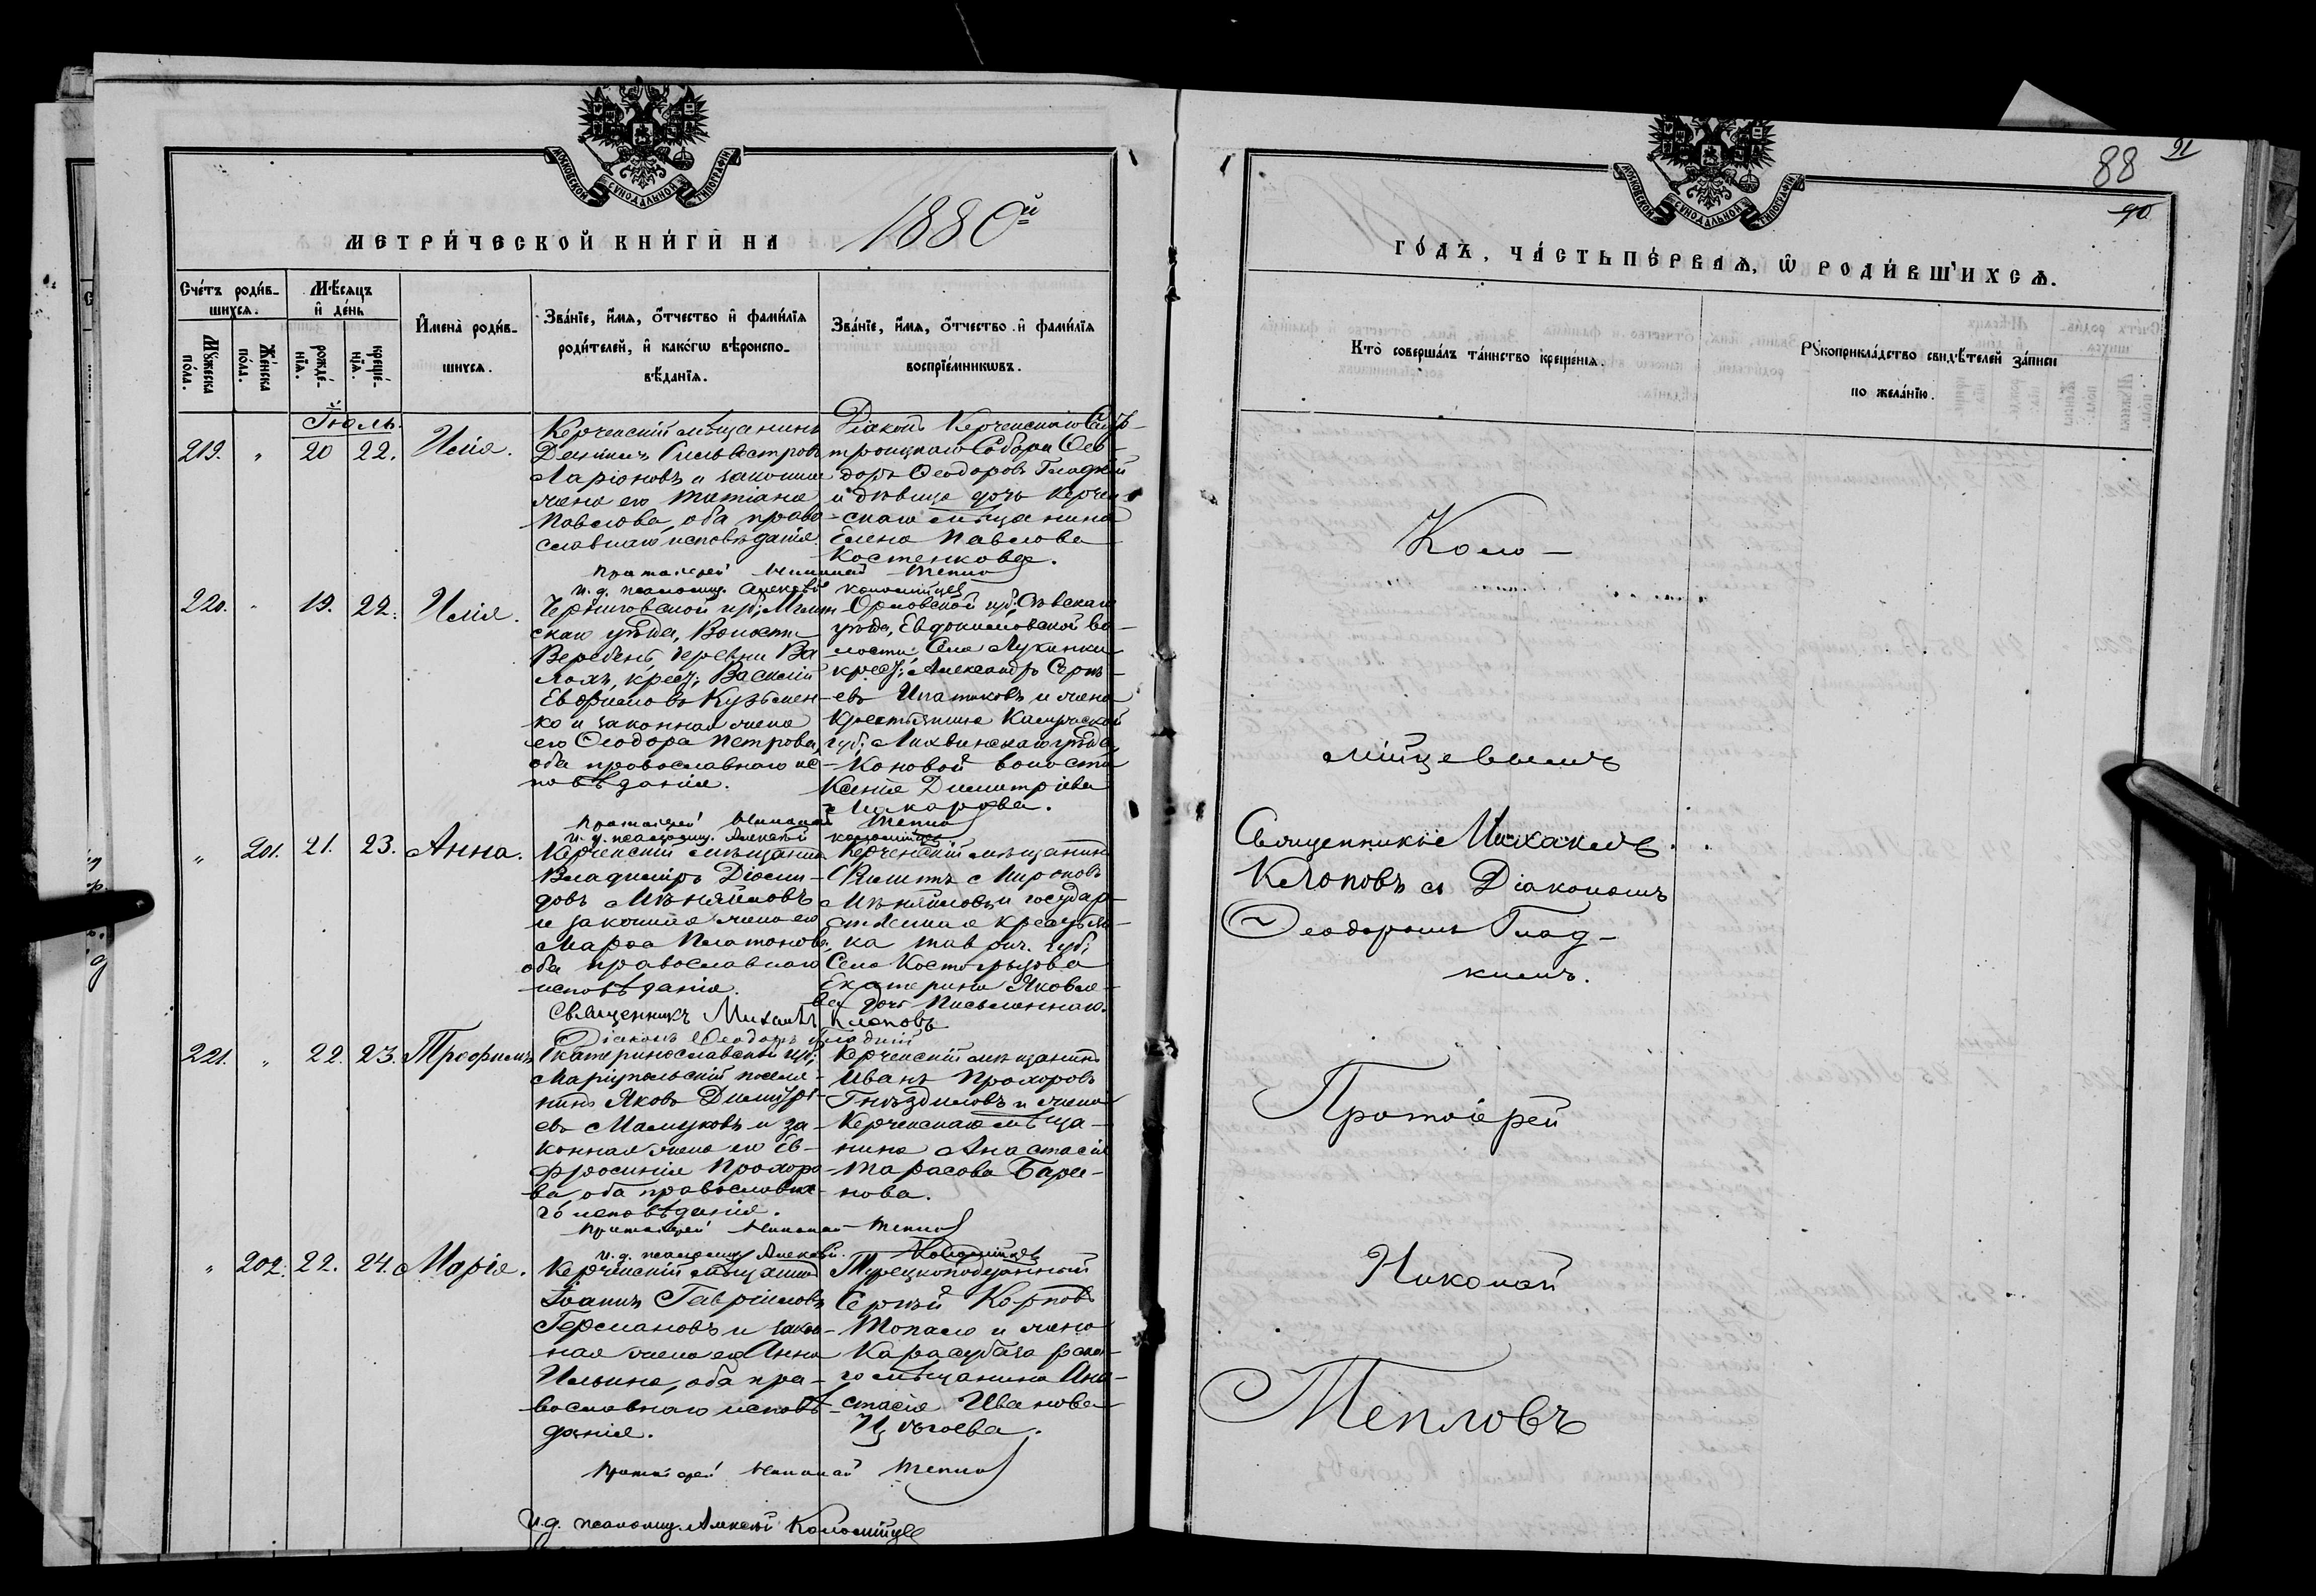 МОСКОВСКОЙ СѴНОДАЛЬНОЙ ТИПОГРАФІИ
МЕТРИ́ЧЕСКОЙ КНИ́ГИ НА 1880й
Сче́тъ роди́в-
шихсѧ.
Мѣ́сѧцъ
и҆ де́нь
Мꙋ́жеска по́ла.
Же́нска по́ла.
рожде́-
нїѧ.
креще́-
нїѧ.
И҆мена̀ роди́в-
шихсѧ.
Зва́нїе, и҆́мѧ, ѻ҆́тчество и҆ фами́лїѧ
роди́телей, и҆ како́гѡ вѣроиспо-
вѣ́данїѧ.
Зва́нїе, и҆́мѧ, ѻ҆́тчество и҆ фами́лїѧ
воспрїе́мникѡвъ.
Іюль.
219. " 20 22. Илія.
Керченскій мѣщанинъ
Сильвестровъ
Ларіоновъ и законная
жена его Татіана
Павлова, оба право-
славнаго исповѣданія.
Діаконъ Керченскаго Свято-
троицкаго Собора Ѳео-
доръ Ѳеодоровъ Гладкій
и дѣвица дочь Керчен-
скаго мѣщанина
Елена Павлова
Костенкова.
Протоіерей Николай Тепловъ
и. д. псаломщ. Алексѣй Коломійцевъ
220. " 19. 22. Илія.
Черниговской губ; Мглин-
скаго уѣзда, Волости
деревни Ва
крест; Василій
Евфимовъ Кузьмен-
ко и законная жена
его Ѳеодора Петрова,
оба православнаго ис-
повѣданія.
Орловской губ: Сѣвскаго
уѣзда, Евдокимовской во-
лости; Села
крест; Александръ Сергѣ-
евъ Ипатиковъ и жена
крестьянина Калужской
губ; Лихвинскаго уѣзда,
волости
Ксенія Димитріева
Макарова.
Протоіерей Николай Тепловъ
и. д. псаломщ. Алексѣй Коломійцевъ
" 201. 21. 23. Анна.
Керченскій мѣщанинъ
Владиміръ Діоми-
довъ Мѣняйловъ
и законная жена его
Марѳа Платонова,
оба православнаго
исповѣданія.
Керченскій мѣщанинъ
Филиппъ Мироновъ
Мѣняйловъ и государ-
ственнаго крестьяни-
на Таврич. губ;
Села Костогрызова
Екатерина Яковле-
ва дочь Письменнаго.
Священникъ Михаилъ Клоповъ
Діаконъ Ѳеодоръ Гладкій
221. " 22. 23. Трофимъ
Екатеринославской губ;
Маріупольскій поселя-
нинъ Яковъ Димитрі-
евъ и за-
конная жена его Ев-
фросинія Прохоро-
ва, оба православна-
го исповѣданія.
Керченскій мѣщанинъ
Иванъ Прохоровъ
Гнѣздиловъ и жена
Керченскаго мѣща-
нина Анастасія
Тарасова Бари-
нова.
Протоіерей Николай Тепловъ
и. д. псаломщ. Алексѣй Коломійцевъ
" 202. 22. 24. Марія.
Керченскій мѣщанинъ
Іоаннъ Гавріиловъ
Германовъ и закон-
ная жена его Анна
Ильина, оба пра-
вославнаго исповѣ-
данія.
Турецкоподданный
Сергѣй
Топало и жена
Карасубазарска-
го мѣщанина Ана-
стасія Иванова
Протоіерей Николай Тепловъ
И.д. псаломщ. Алексѣй Коломійцевъ
88
91
90
МОСКОВСКОЙ СѴНОДАЛЬНОЙ ТИПОГРАФІИ
ГО́ДЪ, ЧА́СТЬ ПЕ́РВАѦ, Ѡ҆ РОДИ́ВШИХСѦ.
Кто̀ соверша́лъ та́инство креще́нїѧ.
Рꙋкоприкла́дство свидѣ́телей за́писи
по жела́нїю.
Коло-
мійцевымъ
Священникъ Михаилъ
Клоповъ съ Діакономъ
Ѳеодоромъ Глад-
кимъ.
Протоіерей
Николай
Тепловъ